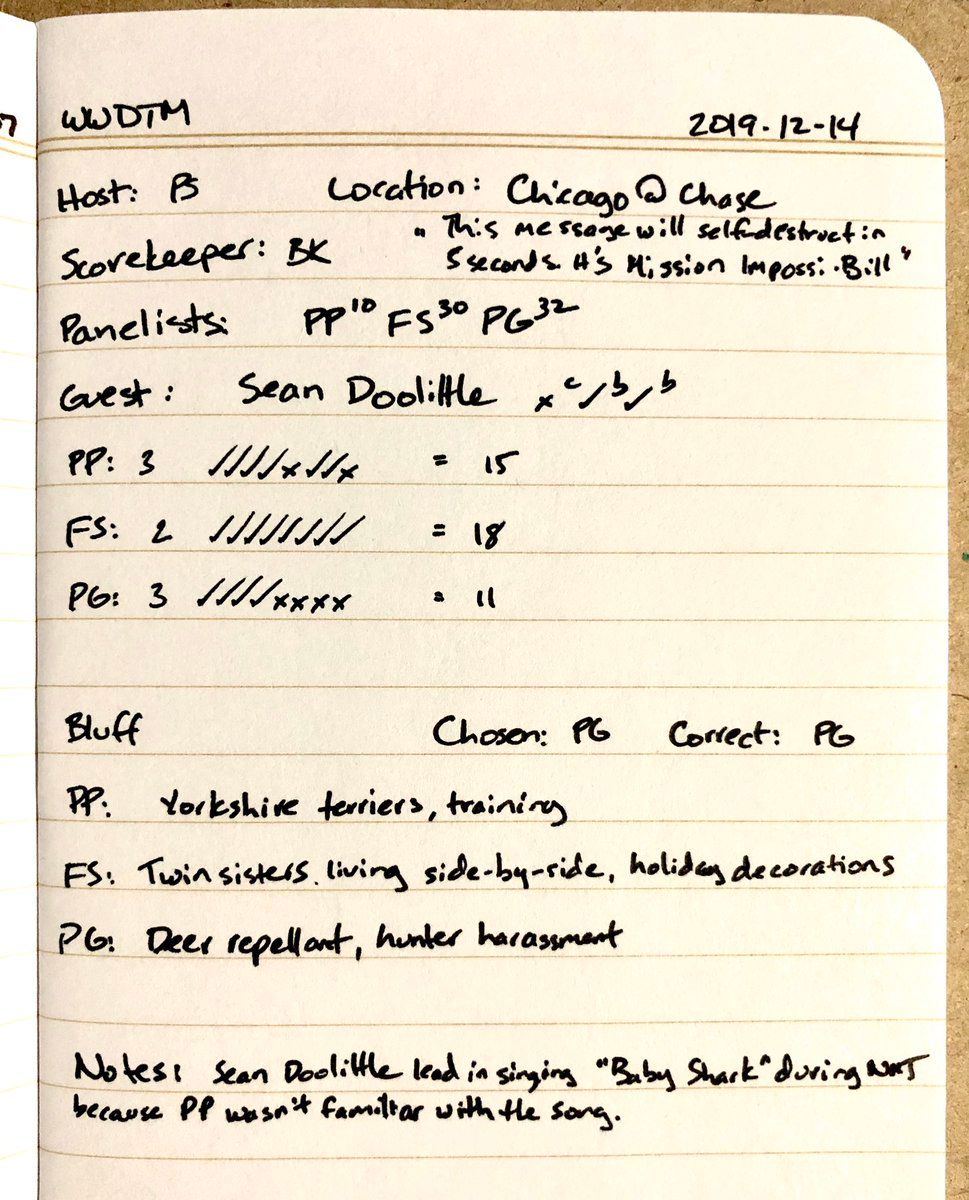 WWDTM 2019-12-14
Host: PS Location: Chicago @ Chase
Scorekeeper: BK "This message will self-destruct in
5 seconds. It's Mission Impossi-Bill"
Panelists: PP10 FS30 PG32
Guest: Sean Doolittle xc ✓b ✓b
PP: 3 ✓✓✓✓x✓✓x = 15
FS: 2 ✓✓✓✓✓✓✓✓ = 18
PG: 3 ✓✓✓✓xxxx = 11
Bluff Chosen: PG Correct: PG
PP: Yorkshire terriers, training
FS: Twin sisters living side-by-side, holiday decorations
PG: Deer repellant, hunter harassment
Notes: Sean Doolittle lead in singing "Baby Shark" during NMJ
because PP wasn't familiar with the song.